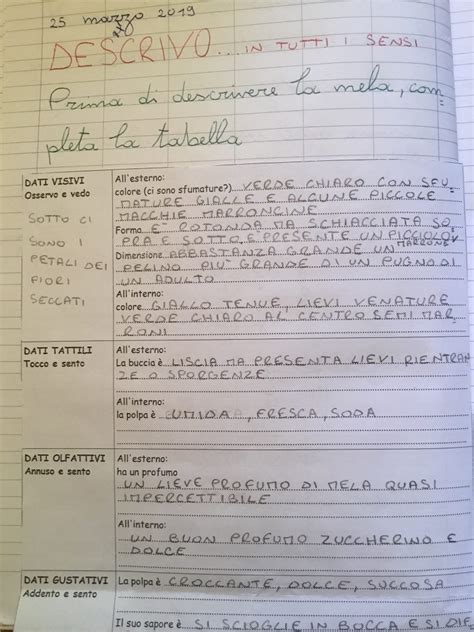 25 marzo 2019
DESCRIVO... IN TUTTI I SENSI
Prima di descrivere la mela, com-
pleta la tabella
DATI VISIVI
Osservo e vedo
SOTTO CI
SONO I
PETALI DEI
FIORI
SECCATI
All'esterno:
colore (ci sono sfumature?) VERDE CHIARO CON SFU-
MATURE GIALLE E ALCUNE PICCOLE
MACCHIE MARRONCINE
Forma E' ROTONDA MA SCHIACCIATA SO
PRA E SOTTO E PRESENTE UN PICCIOLO
MARRONE
Dimensione ABBASTANZA GRANDE UN
PELINO PIU' GRANDE DI UN PUGNO DI
UN ADULTO
All'interno:
colore GIALLO TENUE, LIEVI VENATURE
VERDE CHIARO AL CENTRO SEMI MAR
RONI
DATI TATTILI
Tocco e sento
All'esterno:
La buccia è LISCIA MA PRESENTA LIEVI RIENTRAN
ZE O SPORGENZE
All'interno:
la polpa è UMIDA, FRESCA, SODA
DATI OLFATTIVI
Annuso e sento
All'esterno:
ha un profumo
UN LIEVE PROFUMO DI MELA QUASI
IMPERCETTIBILE
All'interno:
UN BUON PROFUMO ZUCCHERINO E
DOLCE
DATI GUSTATIVI
Addento e sento
La polpa è CROCCANTE, DOLCE, SUCCOSA
Il suo sapore è SI SCIOGLIE IN BOCCA E SI DIF